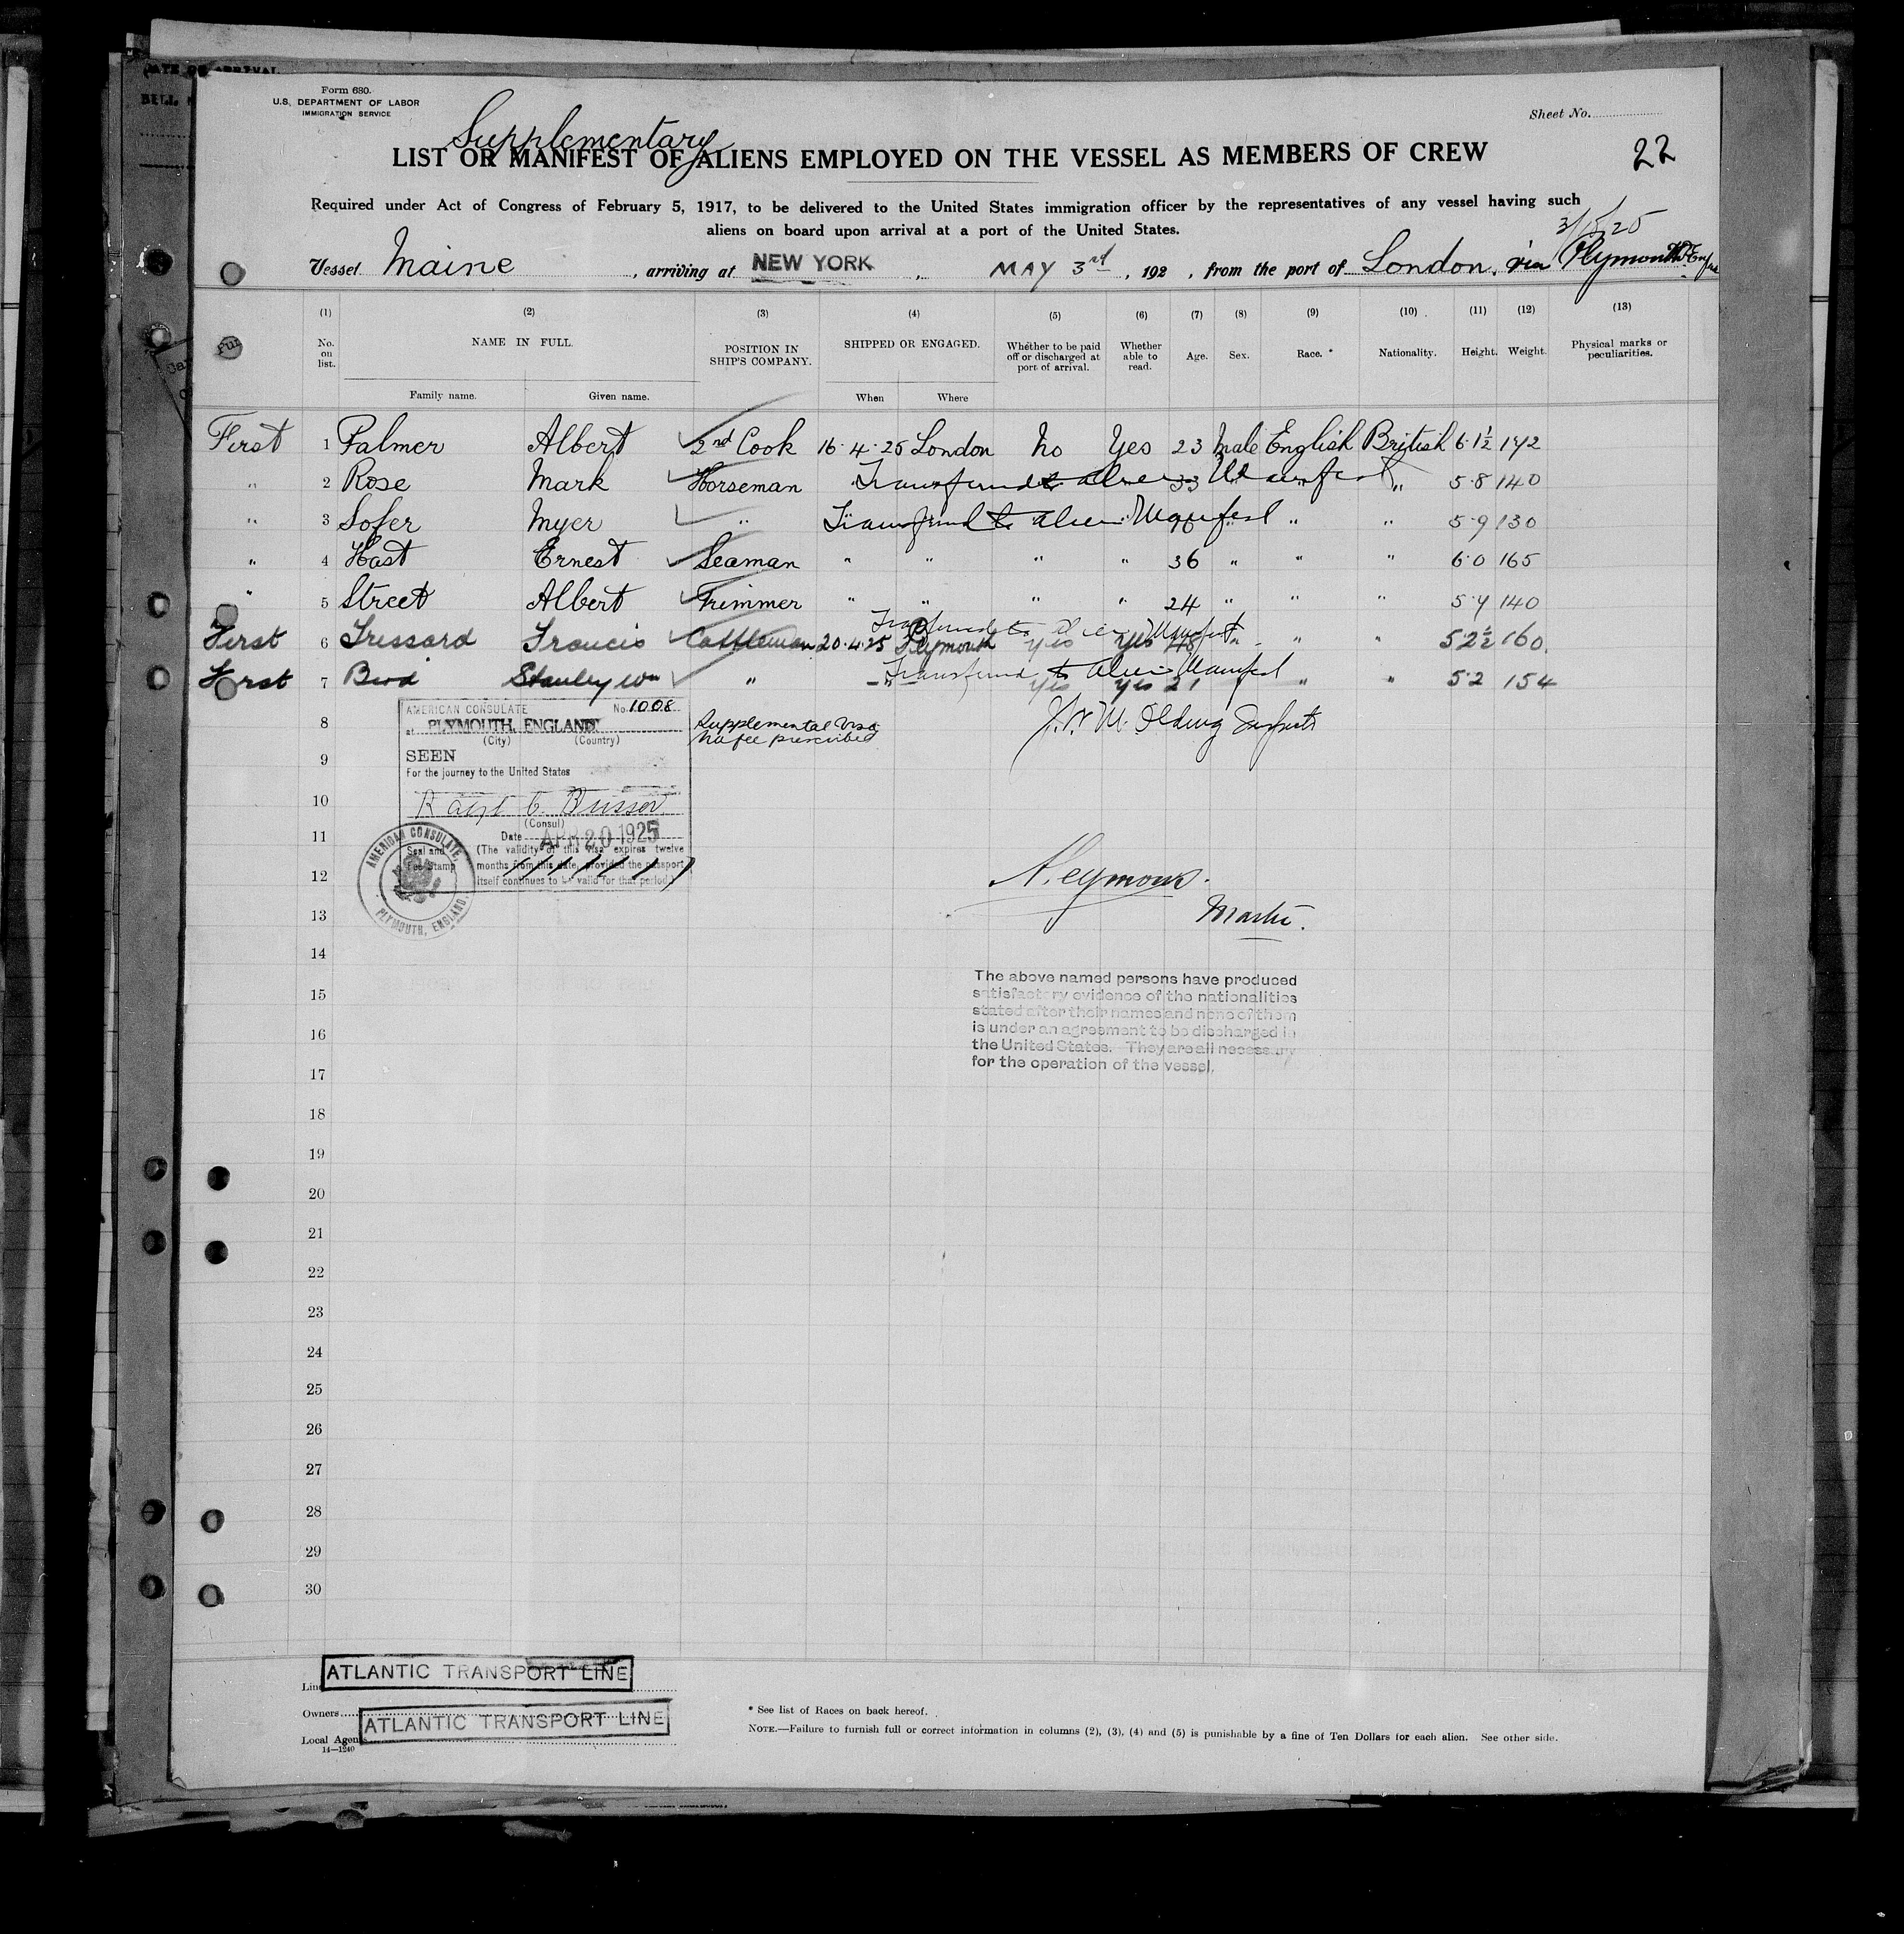 DATE OF ARRIVAL
Form 680.
U.S. DEPARTMENT OF LABOR
IMMIGRATION SERVICE
Sheet No.
22
Supplementary
LIST OR MANIFEST OF ALIENS EMPLOYED ON THE VESSEL AS MEMBERS OF CREW
Required under Act of Congress of February 5, 1917, to be delivered to the United States immigration officer by the representatives of any vessel having such
aliens on board upon arrival at a port of the United States.
Vessel Maine, arriving at NEW YORK, MAY 3rd, 192 , from the port of London. via Plymouth
(1) (2) (3) (4) (5) (6) (7) (8) (9) (10) (11) (12) (13)
No. on list. NAME IN FULL. POSITION IN SHIP'S COMPANY. SHIPPED OR ENGAGED. Whether to be paid off or discharged at port of arrival. Whether able to read. Age. Sex. Race. * Nationality. Height. Weight. Physical marks or peculiarities.
Family name. Given name. When Where
First 1 Palmer Albert 2nd Cook 16.4.25 London No Yes 23 Male English British 6.1½ 172
" 2 Rose Mark Horseman Transferred to Alien Manifest 33 " 5.8 140
" 3 Sofer Myer " Transferred to Alien Manifest " " 5.9 130
" 4 Hast Ernest Seaman " " " " 36 " " " 6.0 165
" 5 Street Albert Trimmer " " " " 24 " " " 5.4 140
Transferred to Alien Manifest
First 6 Tressard Francis Cattleman 20.4.25 Plymouth yes yes 48 " " " 5 2½ 160.
Transferred to Alien Manifest
First 7 Bird Stanley Wm " yes yes 21 " " 5.2 154
8
AMERICAN CONSULATE No. 1008
at PLYMOUTH, ENGLAND
(City) (Country)
SEEN
For the journey to the United States
(Consul)
Date APR 20 1925
Seal and Fee Stamp
(The validity of this visa expires twelve
months from this date, provided the passport
itself continues to be valid for that period)
AMERICAN CONSULATE, PLYMOUTH, ENGLAND.
Supplemental Visa
No fee prescribed
9
10
11
12
13
Master.
14
The above named persons have produced
satisfactory evidence of the nationalities
stated after their names and none of them
is under an agreement to be discharged in
the United States. They are all necessary
for the operation of the vessel.
15
16
17
18
19
20
21
22
23
24
25
26
27
28
29
30
Line ATLANTIC TRANSPORT LINE
Owners ATLANTIC TRANSPORT LINE
Local Agents
14—1240
* See list of Races on back hereof.
NOTE.—Failure to furnish full or correct information in columns (2), (3), (4) and (5) is punishable by a fine of Ten Dollars for each alien. See other side.